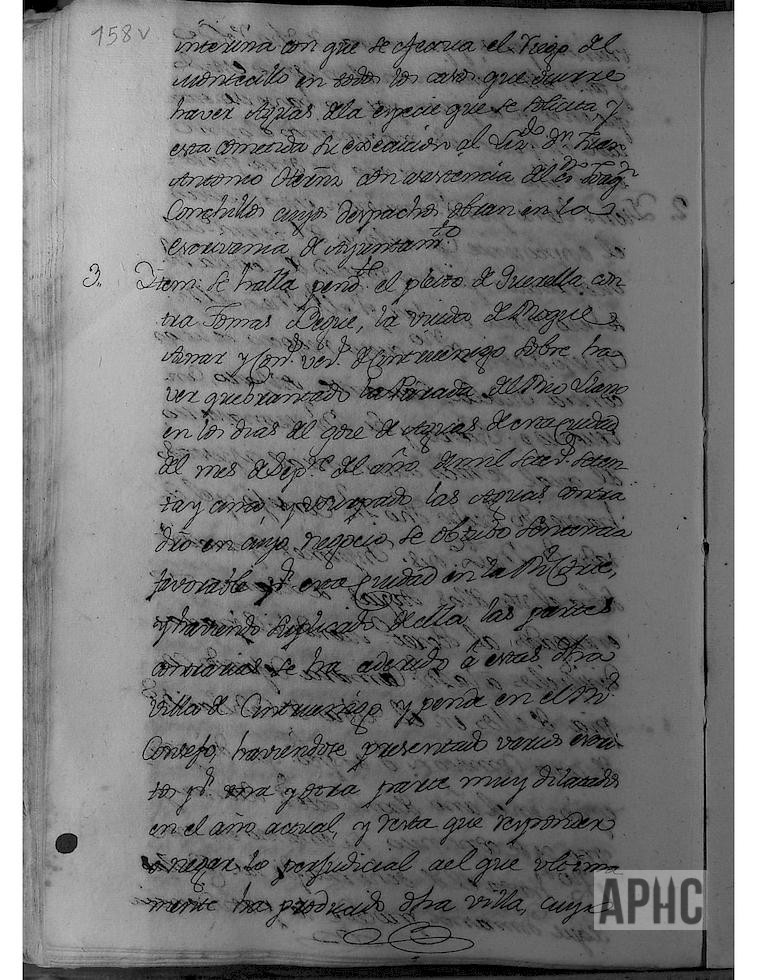 158v
interina con que se observa el riego del
Montecillo en todos los casos que ocurre
haver Aguas de la especie que se solicita, y
esta cometida su execucion al Liz.do Dn. Fran.co
Antonio con asistencia del Sr. Dn. Joaq.n
Conchillos cuyos despachos obran en la
Escrivania de Ayuntam.to
3. Item se halla pend.te el pleito de querella con
tra Tomas Peque, la viuda de Roque
Aznar y Con. vez.s de Cintruenigo sobre ha
ver quebrantado la Parada del Rio Llano
en los dias del goze de Aguas de esta Ciudad
del mes de Sep.re del año de mil sete.s seten
ta y cinco y usurpado las Aguas contra
dro en cuyo negocio se obtubo Sentencia
favorable p.r esta Ciudad en la R.l Corte,
y haviendo suplicado de ella las partes
contrarias se ha aderido á estas dha
Villa de Cintruenigo y pende en el R.l
Consejo, haviendose presentado varios escri
tos p.r una y otra parte muy dilatados
en el año actual, y resta que responder
ó negar lo perjudicial del que ultima
mente ha producido dha villa, cuya
APHC